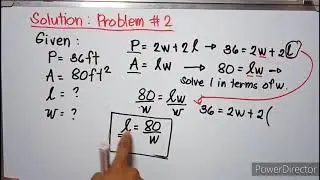 Solution: Problem #2
Given:
P = 36ft
A = 80ft²
l = ?
w = ?
P = 2w + 2l → 36 = 2w + 2l
A = lw → 80 = lw →
solve l in terms of w.
80/w = lw/w
36 = 2w + 2(
l = 80/w
PowerDirector